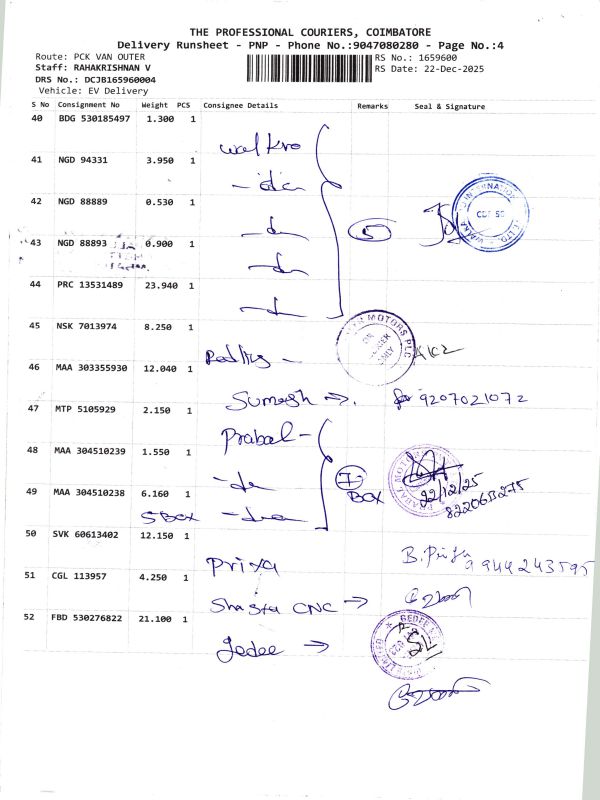 THE PROFESSIONAL COURIERS, COIMBATORE
Delivery Runsheet - PNP - Phone No.:9047080280 - Page No.:4
Route: PCK VAN OUTER
RS No.: 1659600
Staff: RAHAKRISHNAN V
RS Date: 22-Dec-2025
DRS No.: DCJB165960004
Vehicle: EV Delivery
S No Consignment No Weight PCS Consignee Details Remarks Seal & Signature
40 BDG 530185497 1.300 1
41 NGD 94331 3.950 1
42 NGD 88889 0.530 1
5
43 NGD 88893 0.900 1
44 PRC 13531489 23.940 1
45 NSK 7013974 8.250 1
MOTORS
46 MAA 303355930 12.040 1
Sumesh → 9207021072
47 MTP 5105929 2.150 1
Prabal -
48 MAA 304510239 1.550 1
7
BOX
22/12/25
49 MAA 304510238 6.160 1
5 BOX
50 SVK 60613402 12.150 1
Priya B. Priya
9944243595
51 CGL 113957 4.250 1
Shasta CNC →
52 FBD 530276822 21.100 1
Gedee →